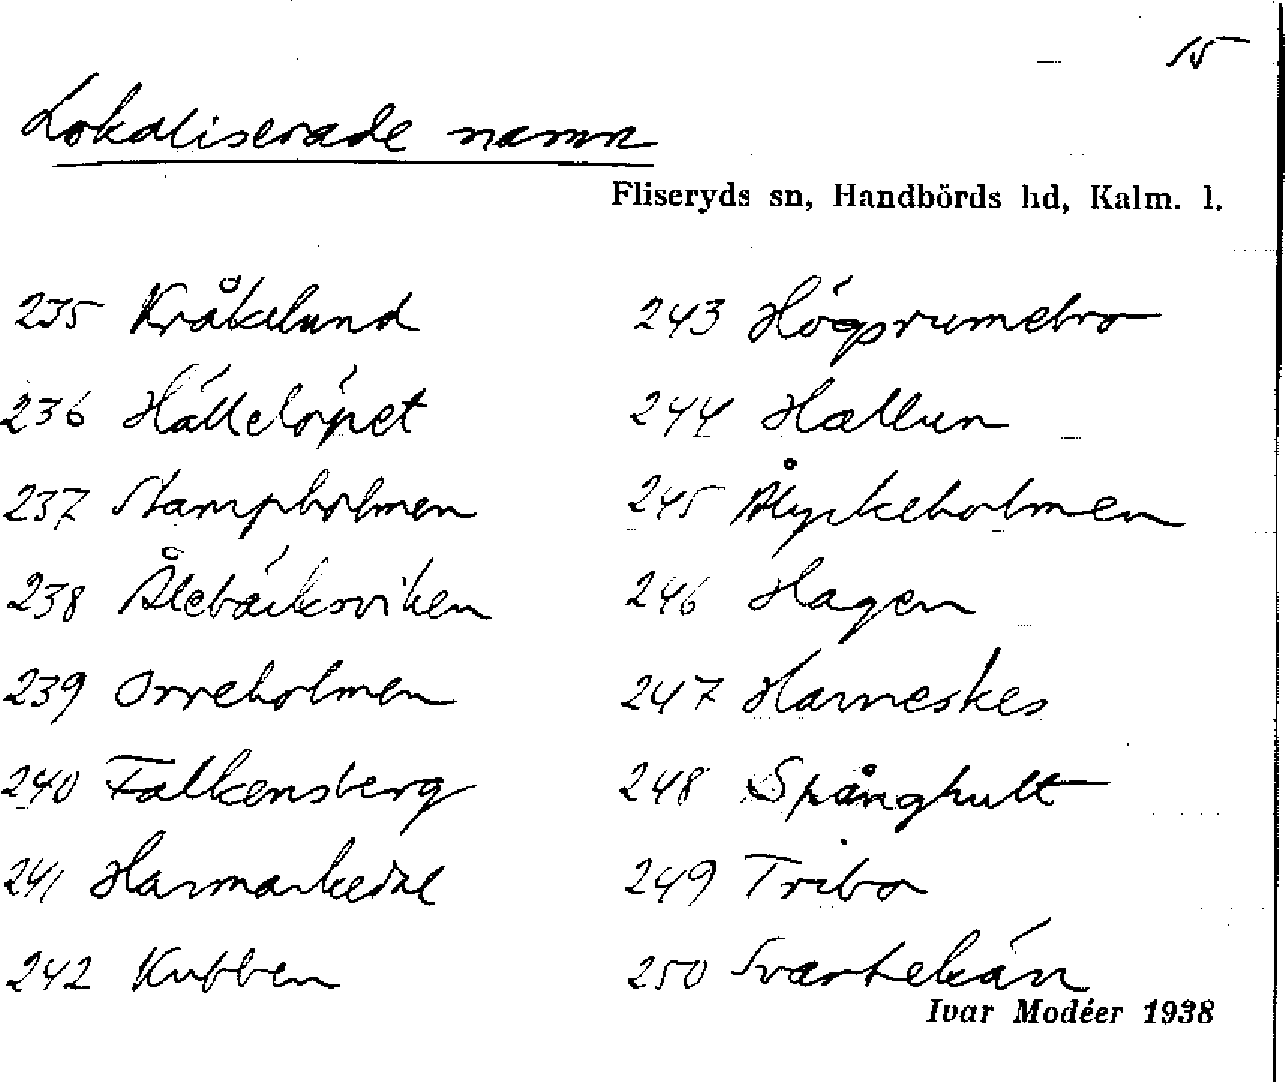 15
Lokaliserade namn
Fliseryds sn, Handbörds hd, Kalm. l.
235 Kråkelund
236 Hälleløpet
237 Stampholmen
238 Ålebäcksviken
239 Orreholmen
240 Falkensberg
241
242 Kubben
243 Högsrumebro
244 Hallun
245
246 Hagen
247 Harneskes
248 Spånghult
249 Tribo
250 Svartekärr
Ivar Modéer 1938